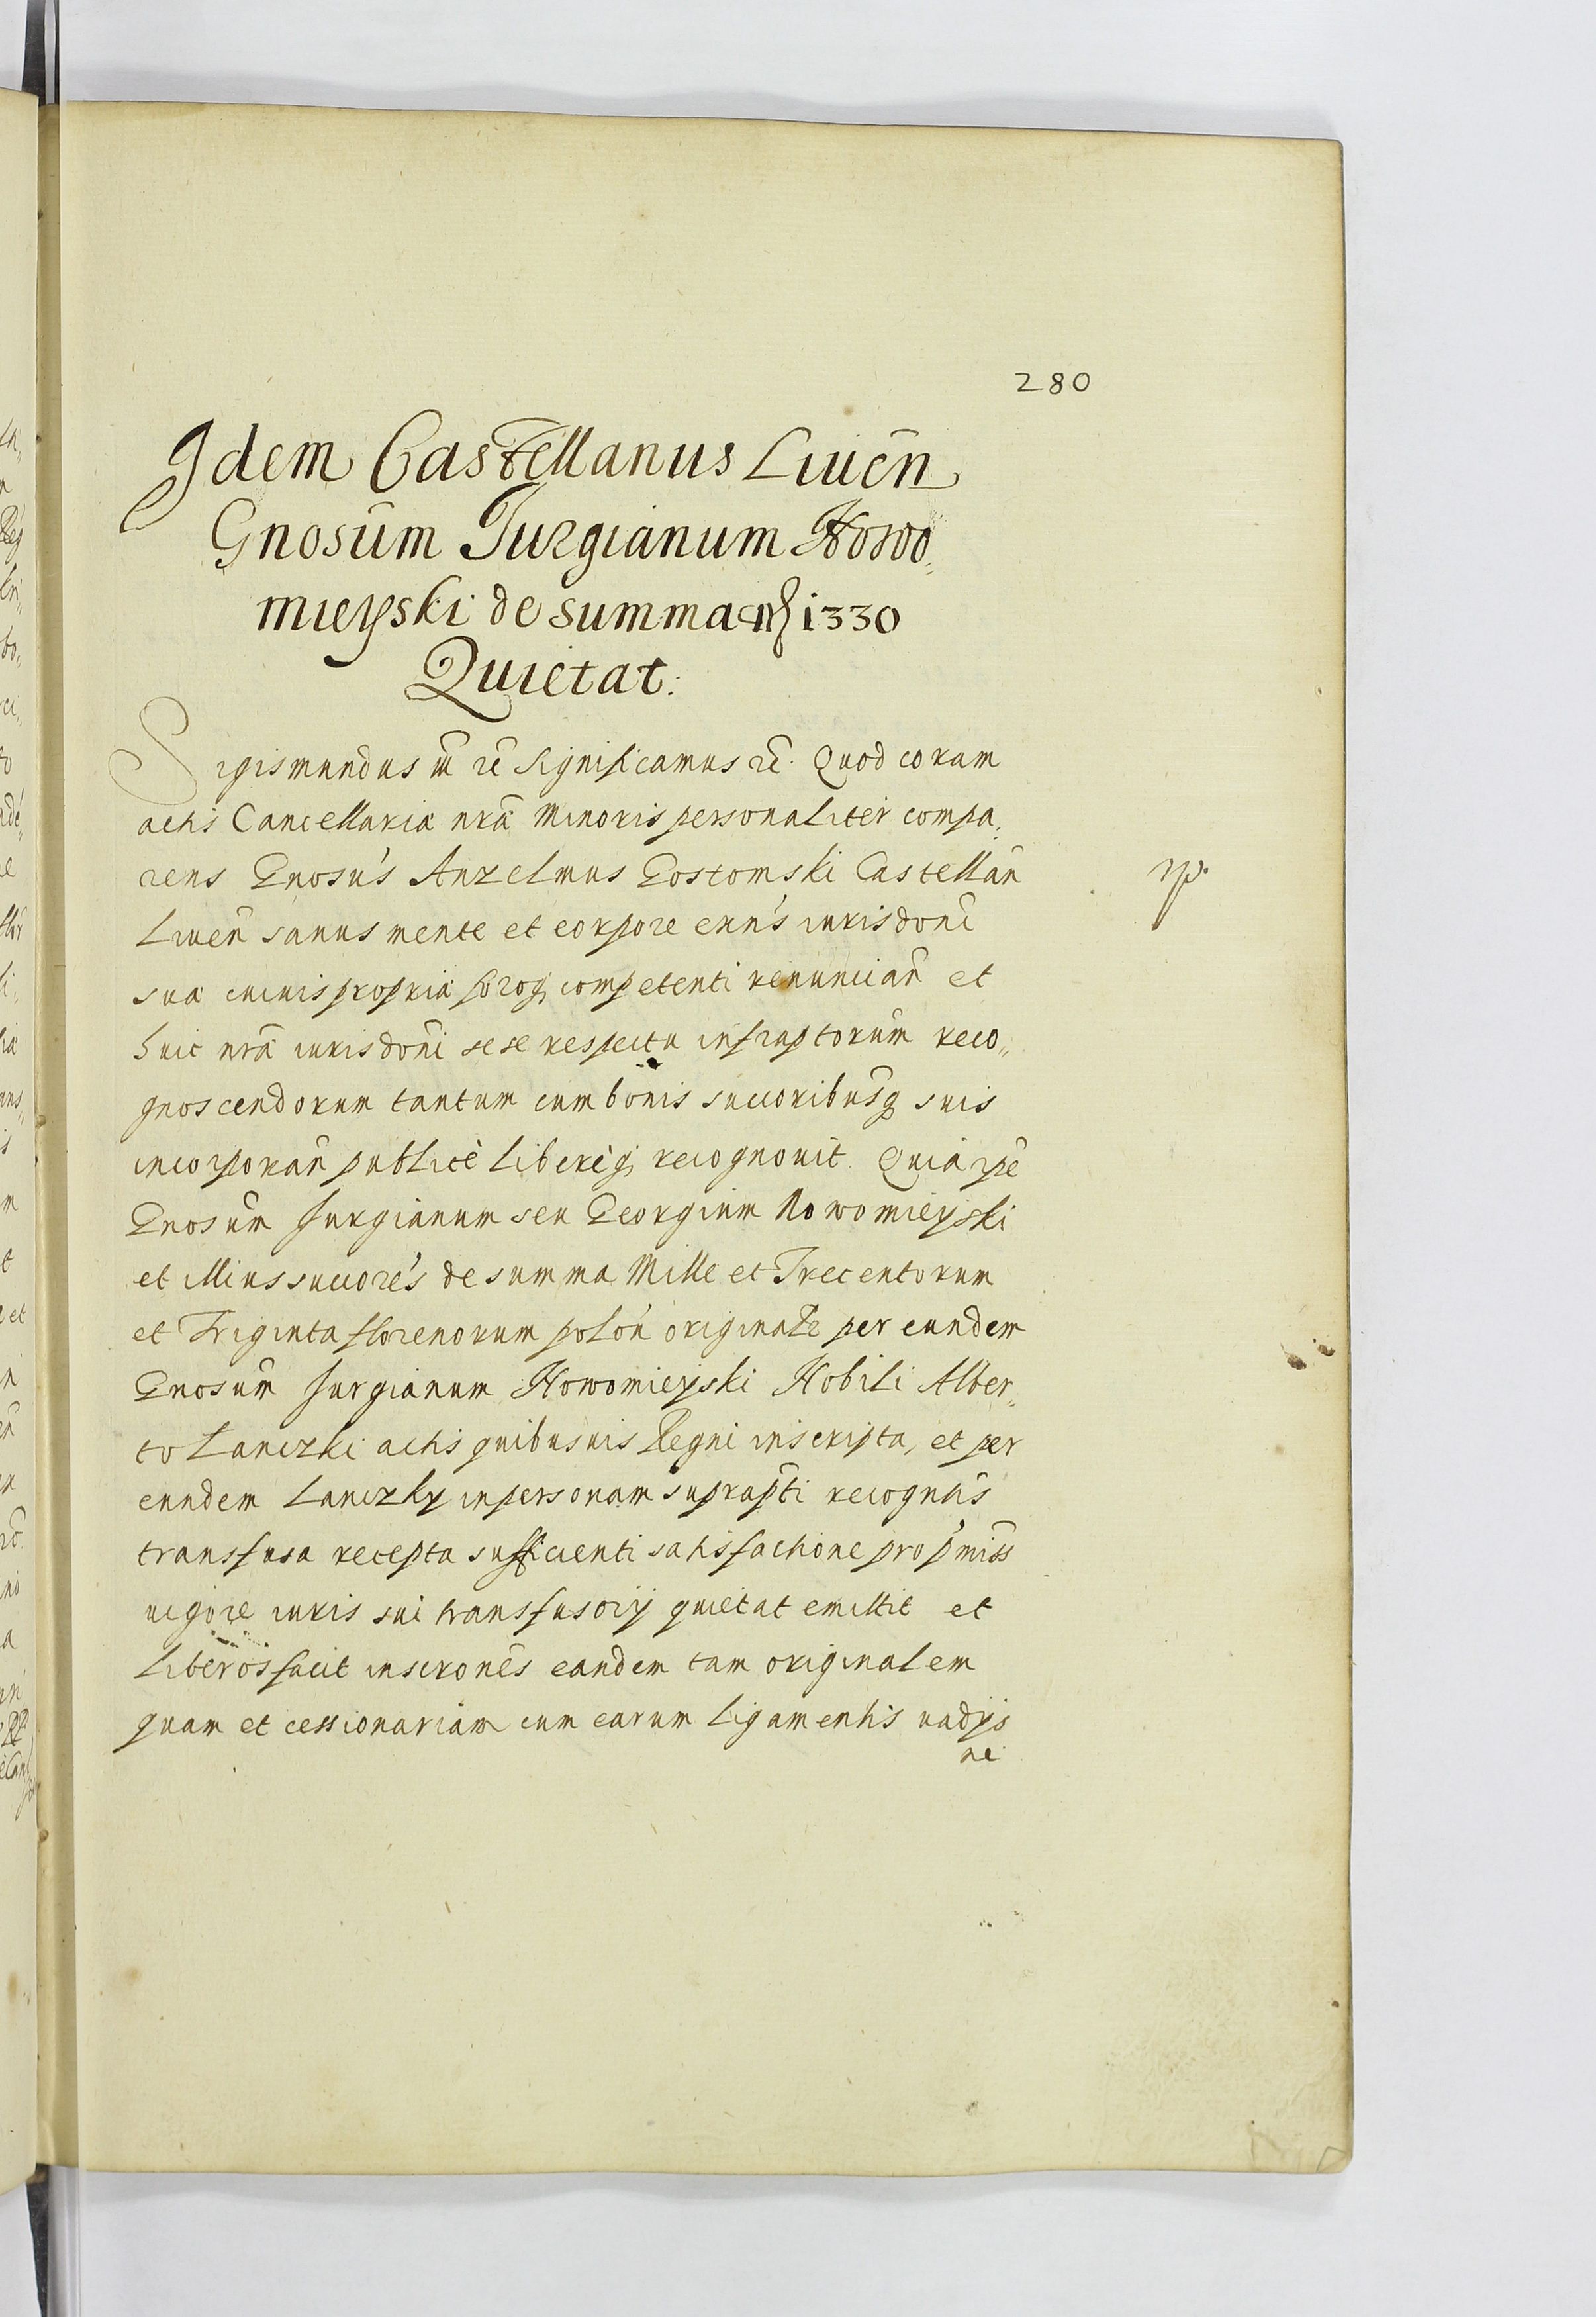 280
Idem Castellanus Liuen̄
Gnosum̄ Jurgianum Nowo„
mieyski de summa 1330
Quietat.
Sigismundus III rē Significamus rē. Quod coram
actis Cancellariæ nrã Minoris personaliter compa„
rens Gnosus Anzelmus Gostomski Castellan̄
Liuen̄ sanus mente et corpore exn's iurisdoni
sua cuiuis propria foroq̨ competenti renuncian̄ et
huic nrã iurisdoni sese respectu infraptorum̄ reco„
gnoscendorum tantum cum bonis succoribusq̨ suis
incorporan̄ publicè liberèq̨ recognouit. Quia ipē
Gnosum̄ Jurgianum seu Georgium Nowomieyski
et illius succores de summa Mille et Trecentorum
et Triginta florenorum polon̄ originalr per eundem
Gnosum̄ Jurgianum Nowomieyski Nobili Alber„
to Lanczki actis quibusuis Regni inscripta, et per
eundem Lanczky in personam suprapti recogntis
transfusa recepta sufficienti satisfactione pro pmiss
uigore iuris sui transfusorij quietat emittit et
liberos facit inscrones eandem tam originalem
quam et cessionariam cum earum ligamentis uadijs
rē